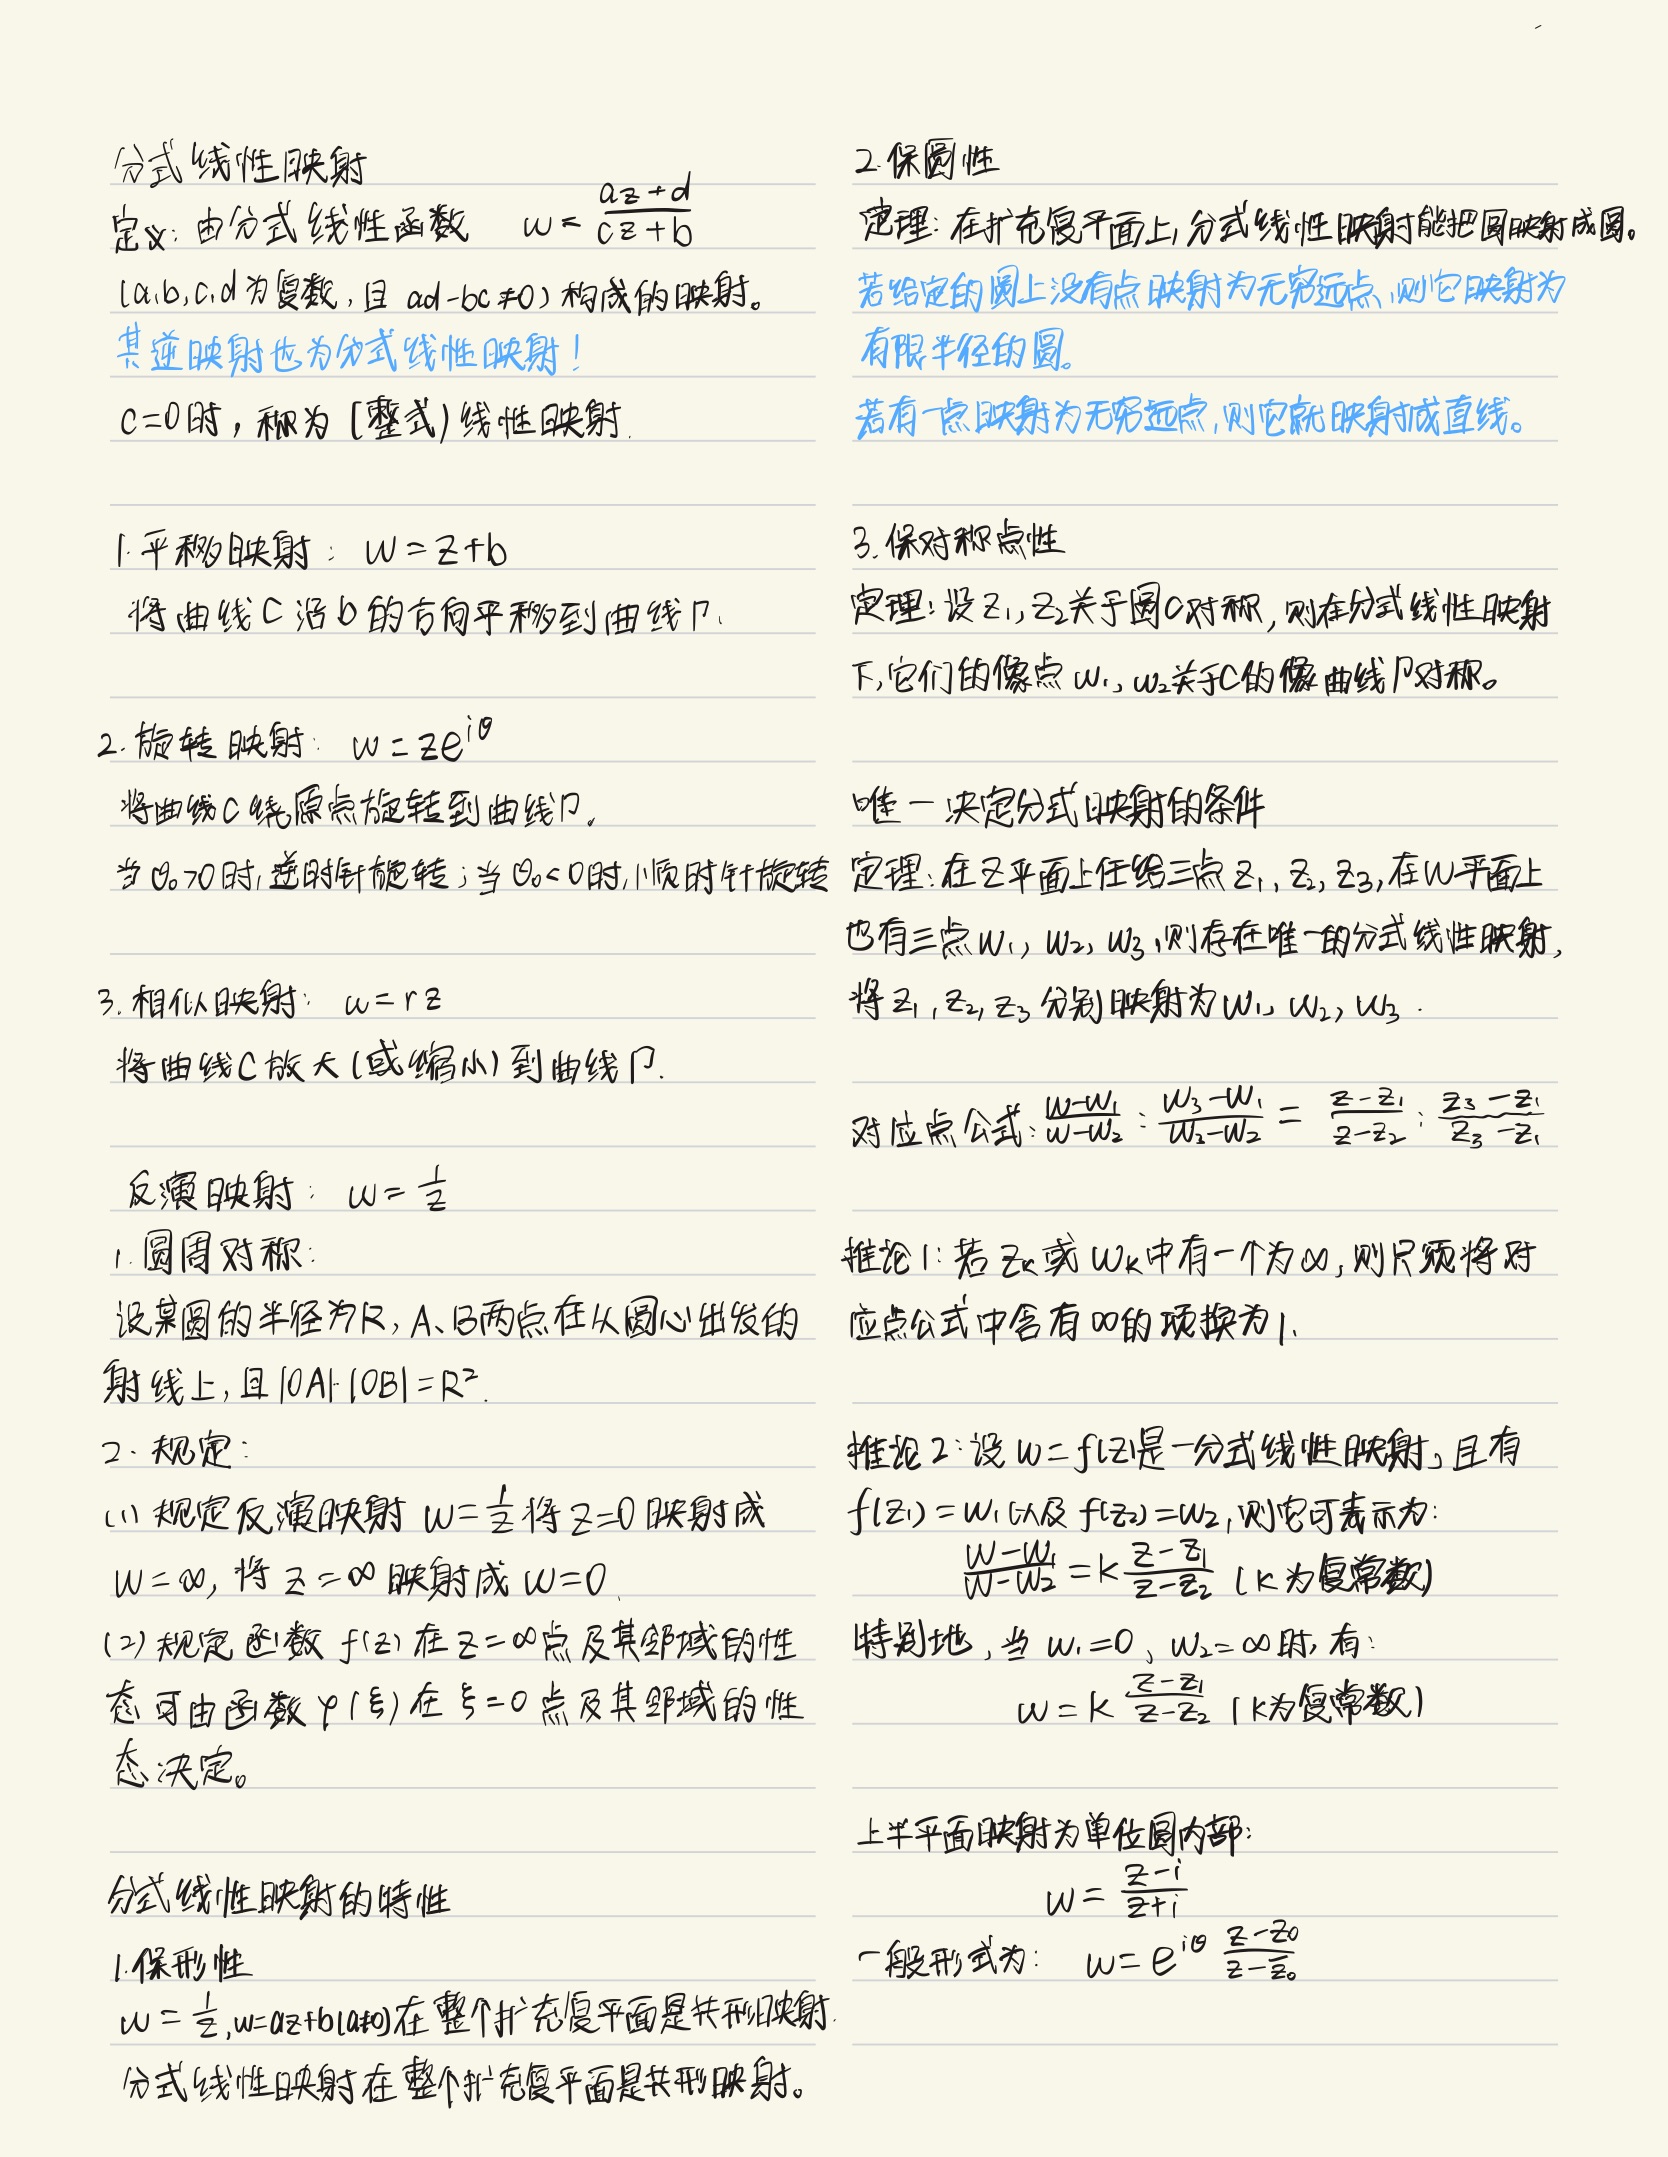 分式线性映射
定义: 由分式线性函数 w = (az+d)/(cz+b)
(a,b,c,d为复数,且 ad-bc≠0)构成的映射。
其逆映射也为分式线性映射!
c=0时,称为(整式)线性映射.
1.平移映射: w=z+b
将曲线C沿b的方向平移到曲线Γ.
2.旋转映射: w=ze^{iθ}
将曲线C绕原点旋转到曲线Γ.
当θ₀>0时,逆时针旋转;当θ₀<0时,顺时针旋转
3.相似映射: w=rz
将曲线C放大(或缩小)到曲线Γ.
反演映射: w=1/z
1.圆周对称:
设某圆的半径为R,A、B两点在从圆心出发的
射线上,且|OA|·|OB|=R².
2.规定:
(1)规定反演映射 w=1/z 将z=0映射成
w=∞,将 z=∞映射成 w=0.
(2)规定函数 f(z) 在 z=∞点及其邻域的性
态可由函数 φ(ξ)在 ξ=0点及其邻域的性
态决定。
分式线性映射的特性
1.保形性
w=1/z,w=az+b(a≠0)在整个扩充复平面是共形映射.
分式线性映射在整个扩充复平面是共形映射。
2.保圆性
定理:在扩充复平面上,分式线性映射能把圆映射成圆。
若给定的圆上没有点映射为无穷远点,则它映射为
有限半径的圆。
若有一点映射为无穷远点,则它就映射成直线。
3.保对称点性
定理:设z₁,z₂关于圆C对称,则在分式线性映射
下,它们的像点w₁,w₂关于C的像曲线Γ对称。
唯一决定分式映射的条件
定理:在Z平面上任给三点z₁,z₂,z₃,在W平面上
也有三点w₁,w₂,w₃,则存在唯一的分式线性映射,
将z₁,z₂,z₃分别映射为w₁,w₂,w₃.
对应点公式: (w-w₁)/(w-w₂) : (w₃-w₁)/(w₃-w₂) = (z-z₁)/(z-z₂) : (z₃-z₁)/(z₃-z₁)
推论1:若z_k或w_k中有一个为∞,则只须将对
应点公式中含有∞的项换为1.
推论2:设w=f(z)是一分式线性映射,且有
f(z₁)=w₁以及f(z₂)=w₂,则它可表示为:
(w-w₁)/(w-w₂)=k (z-z₁)/(z-z₂) (k为复常数)
特别地,当w₁=0,w₂=∞时,有:
w=k (z-z₁)/(z-z₂) (k为复常数)
上半平面映射为单位圆内部:
w= (z-i)/(z+i)
一般形式为: w=e^{iθ} (z-z₀)/(z-z̄₀)